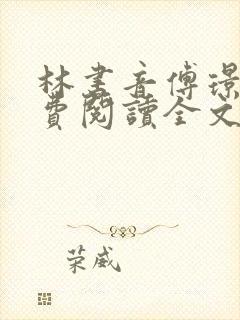 林書音傅璟
費閱讀全文
荣威